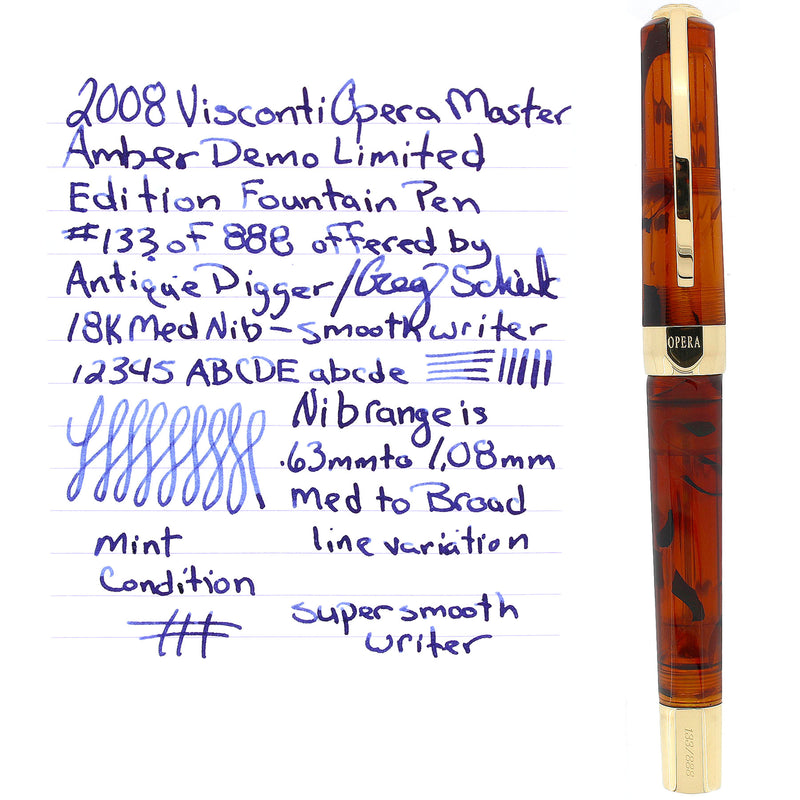 2008 Visconti Opera Master
Amber Demo Limited
Edition Fountain Pen
#133 of 888 offered by
Antique Digger/Greg
18K Med Nib - smooth writer
12345 ABCDE abcde
Nib range is
.63mm to 1.08mm
med to Broad
line variation
mint
Condition
super smooth
writer
OPERA
133/888